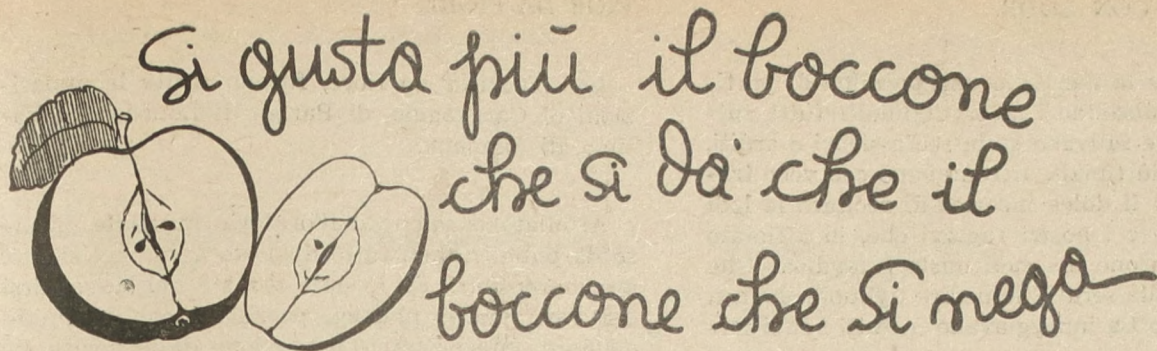 Si gusta più il boccone
che si dà che il
boccone che si nega